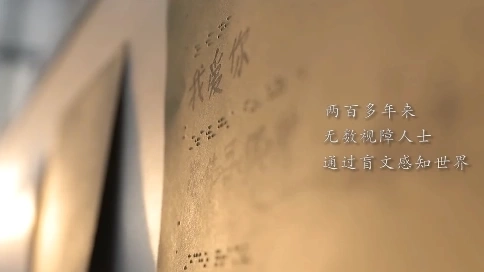 我爱你
两百多年来
无数视障人士
通过盲文感知世界